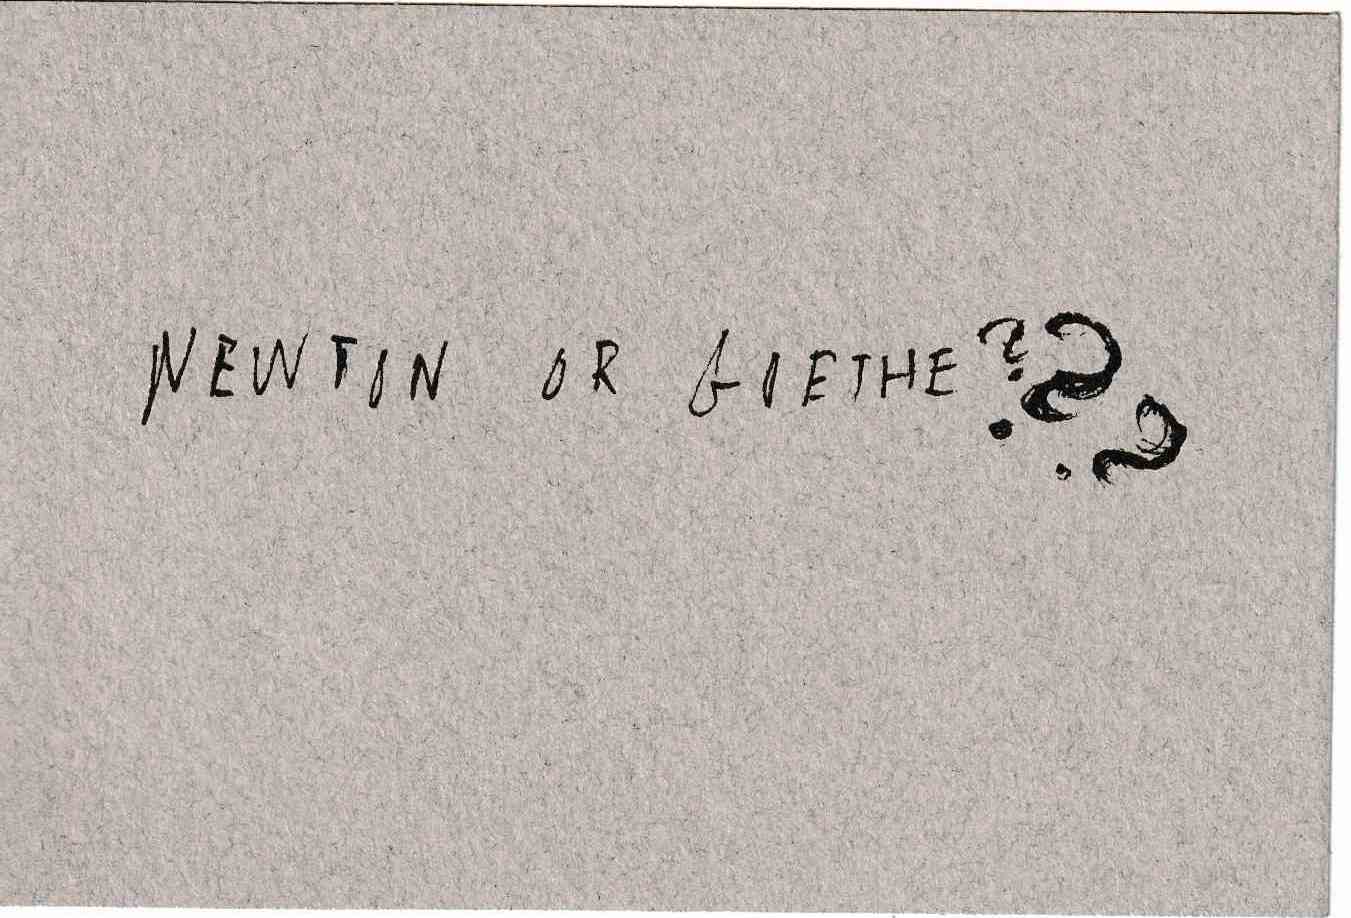 NEWTON OR GOETHE???